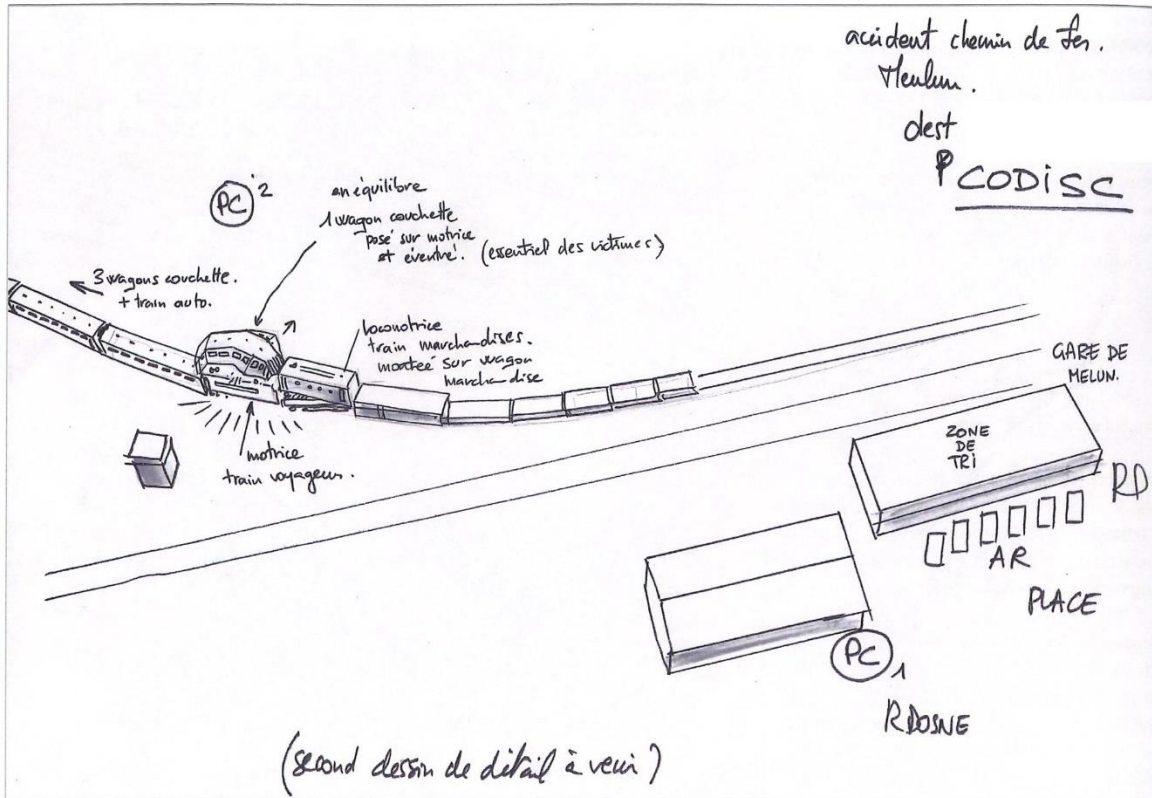 accident chemin de fer.
Meulun.
dest
P CODISC
PC 2
en équilibre
1 wagon couchette
posé sur motrice
et éventré. (essentiel des victimes)
3 wagons couchette.
+ train auto.
locomotrice
train marchandises.
montée sur wagon
marchandise
motrice
train voyageur.
GARE DE
MELUN.
ZONE
DE
TRI
RD
AR
PLACE
PC 1
RDOSNE
(second dessin de détail à venir)